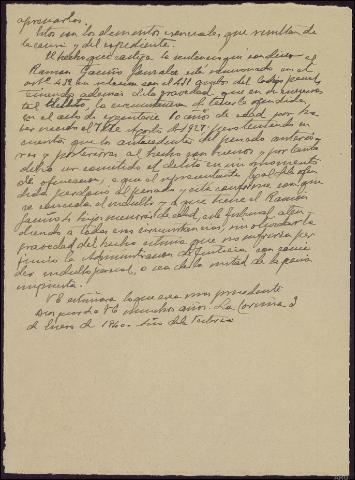 aprovarlos.
Estos son los elementos esenciales, que resultan de
la causa y del expediente.
El hecho que castiga la sentencia que condenó a
Ramon Gacño Gonzalez está sancionado en el
artº 438 en relacion con el 431 del Codigo penal,
teniendo ademas de la gravedad que en si
tal delito, la circunstancia de tener la ofendida,
con el acto de, 10 años de edad por ha-
ber nacido el 7 de Agosto de 1927, pero teniendo en
cuenta, que los antecedentes del penado anterio-
res y posteriores al hecho son buenos y por tanto
debio ser cometido el delito en un momento
de ofuscacion, y que el representante legal de la ofen-
dida perdona al penado y esta conforme con que
se conceda el indulto y a que tiene el Ramon
4 hijos menores de edad, este Tribunal aten-
diendo a todas esas circunstancias, no olvidando la
gravedad del hecho estima que no sufriria per-
juicio la Administracion de Justicia con conce-
der indulto parcial, o sea de la mitad de la pena
impuesta.
VE estimara lo que crea mas procedente
Dios guarde a VE muchos años. La Coruña 3
de Enero de 1940. Año de la Victoria